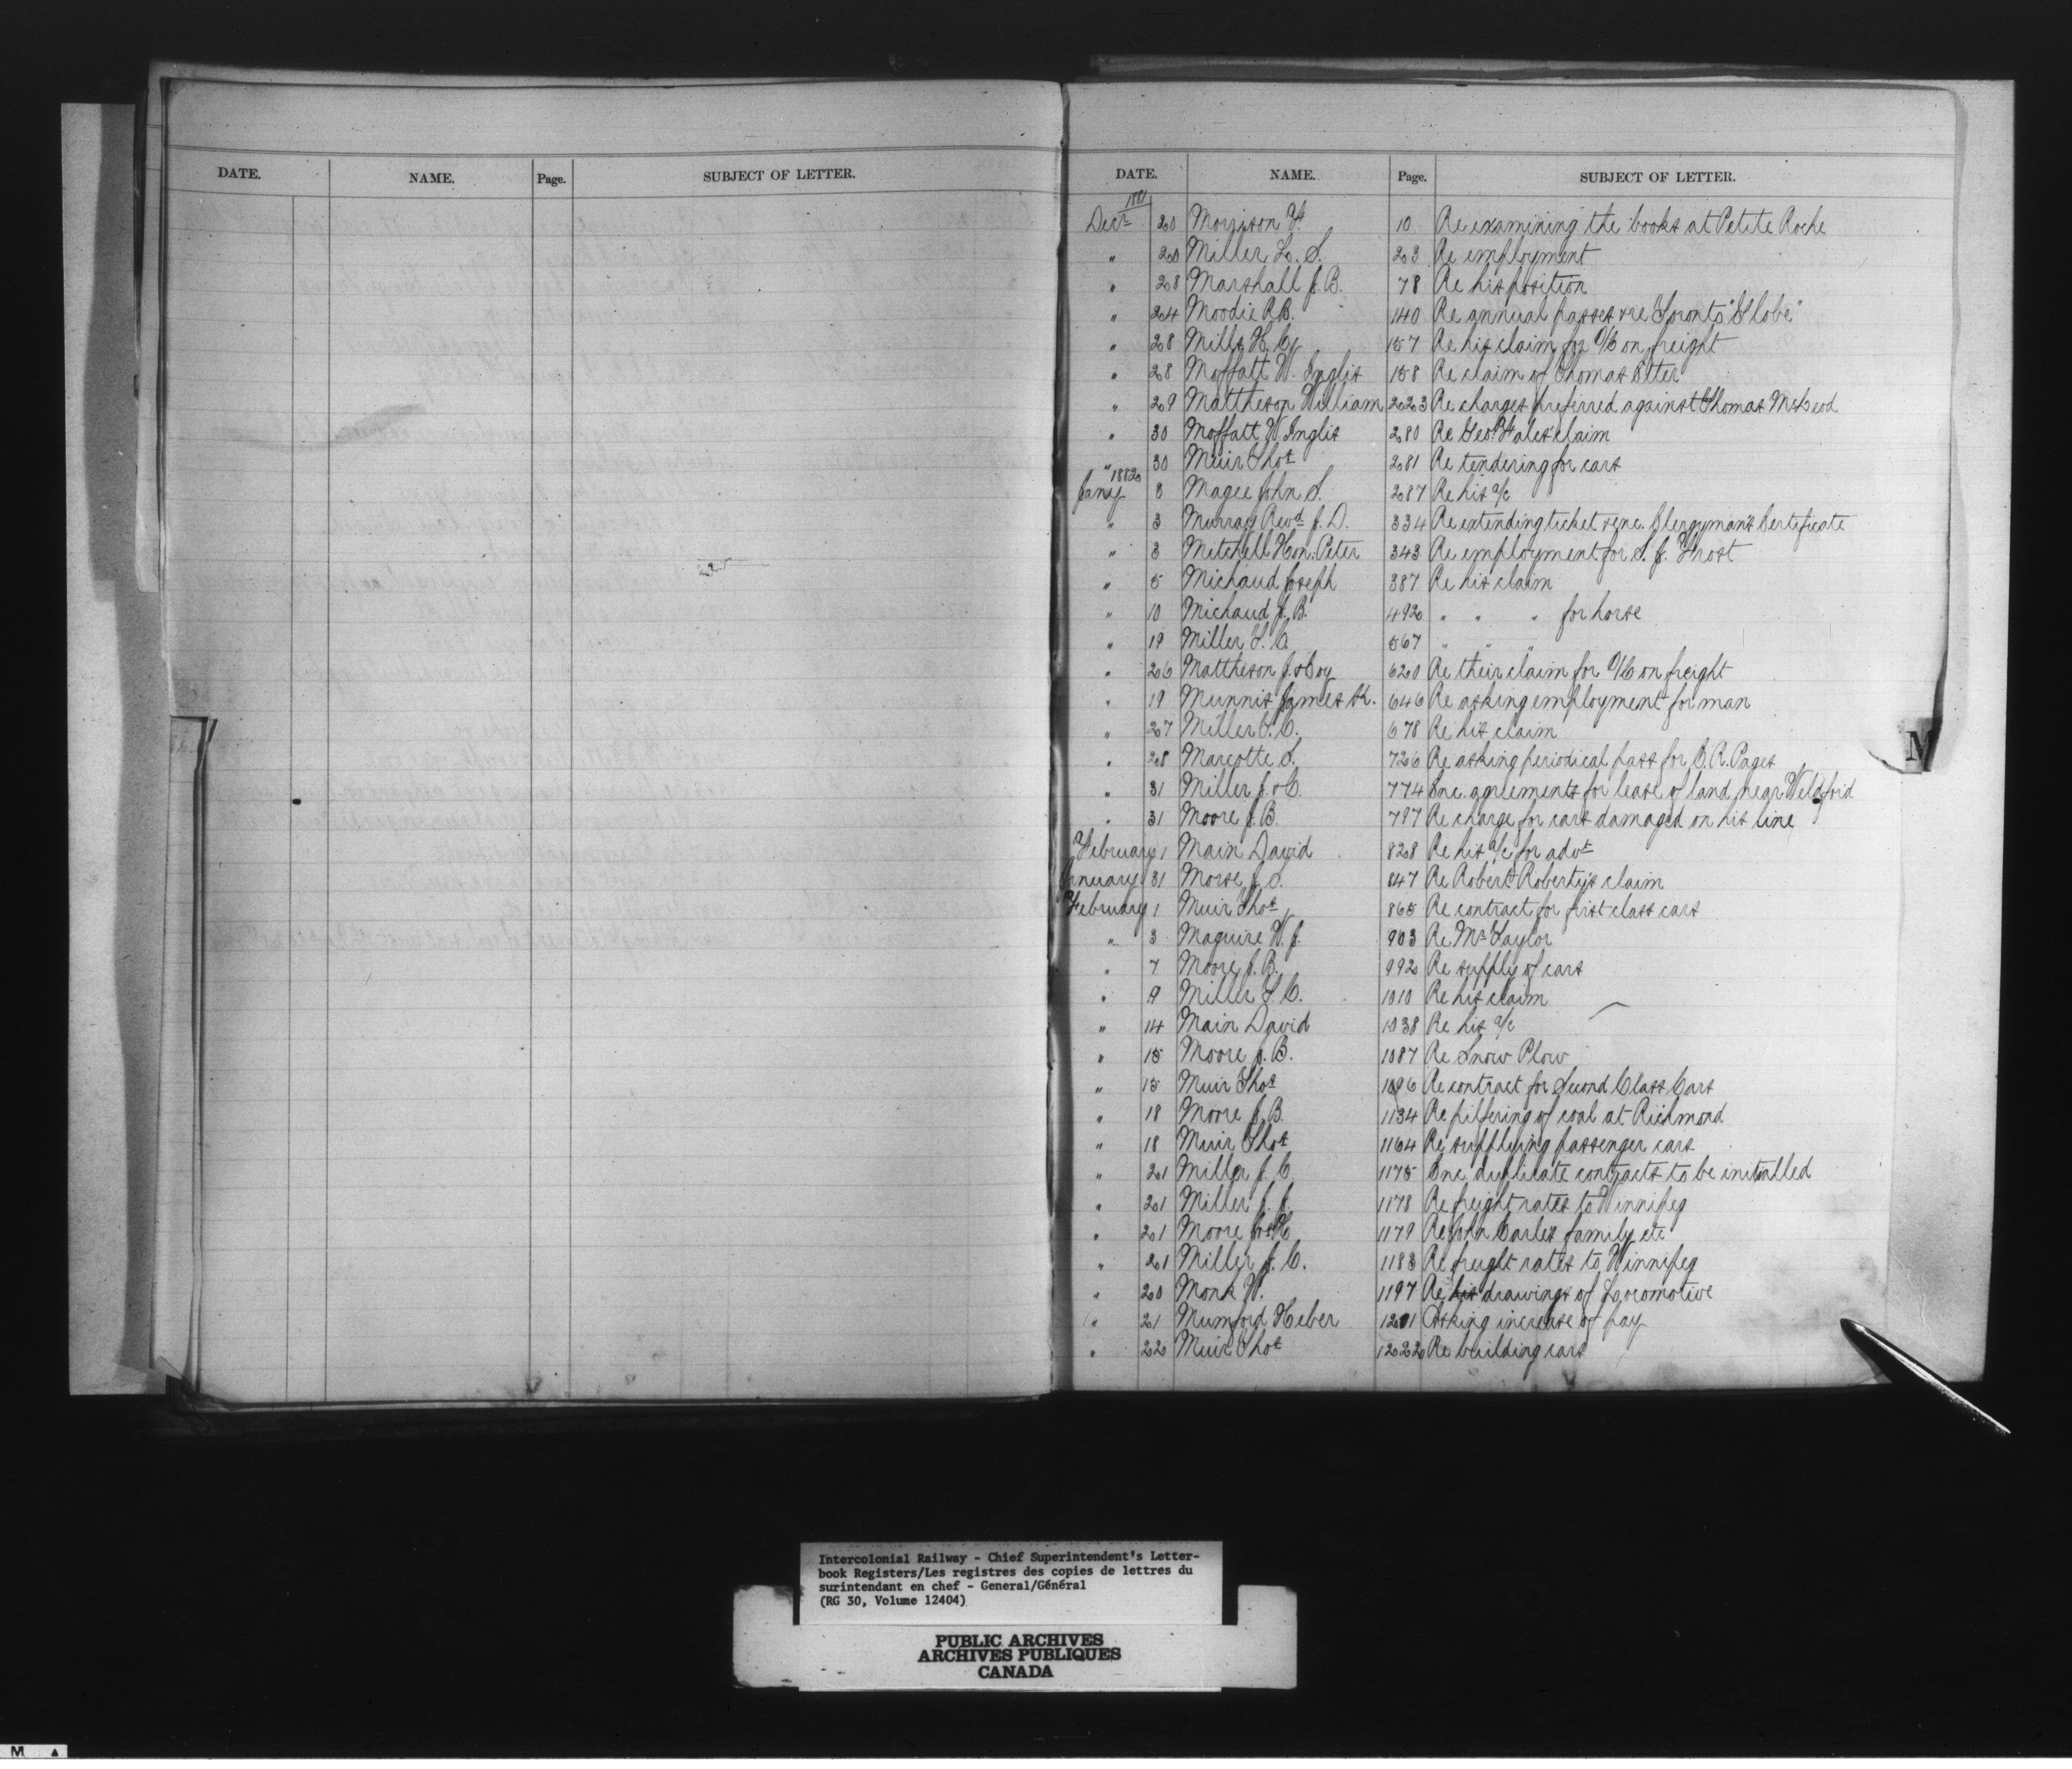 DATE. NAME. Page. SUBJECT OF LETTER.
DATE. NAME. Page. SUBJECT OF LETTER.
1881
Decr 20 Morrison F. 10 Re examining the books at Petite Roche
" 20 Miller L. S. 23 Re employment
" 28 Marshall J. B. 78 Re his position
" 24 Moodie R B. 140 Re annual passes re Toronto "Globe"
" 28 Mills H. C. 157 Re his claim for O/C on freight
" 28 Moffatt W. Inglis 158 Re claim of Thomas Etter
" 29 Mattheson William 223 Re charges preferred against Thomas McLeod
" 30 Moffatt W Inglis 280 Re Geo. claim
" 30 Muir Thos 281 Re tendering for cars
1882
Jany 3 Magee John S. 287 Re his a/c
" 3 Murray Revd J. D. 334 Re extending ticket & enc. Clergyman's Certificate
" 3 Mitchell Hon: Peter 343 Re employment for S. J. Frost
" 5 Michaud Joseph 387 Re his claim
" 10 Michaud J. B. 492 " " " for horse
" 19 Miller T. C. 567 " " "
" 26 Mattheson J. & Coy 620 Re their claim for O/C on freight
" 19 Munnis James Sr. 646 Re asking employment for man
" 27 Miller T. C. 678 Re his claim
" 28 Marcotte S. 726 Re asking periodical pass for C. R. Pages
" 31 Miller J. & C. 774 Enc. agreements for lease of land near Weldford
" 31 Moore J. B. 797 Re charge for cars damaged on his line
February 1 Main David 828 Re his a/c for advt
January 31 Morse J. S. 847 Re Robert Roberty's claim
February 1 Muir Thos 865 Re contract for first class cars
" 3 Maguire W. J. 903 Re Mr Taylor
" 7 Moore J. B. 992 Re supply of cars
" 9 Miller T. C. 1010 Re his claim
" 14 Main David 1038 Re his a/c
" 15 Moore J. B. 1087 Re Snow Plow
" 15 Muir Thos 1096 Re contract for Second Class Cars
" 18 Moore J. B. 1134 Re pilfering of coal at Richmond
" 18 Muir Thos 1164 Re supplying passenger cars
" 21 Miller J. C. 1175 Enc duplicate contracts to be initialled
" 21 Miller J. J. 1178 Re freight rates to Winnipeg
" 21 Moore 1179 Re John Carle's family etc
" 21 Miller J. C. 1183 Re freight rates to Winnipeg
" 20 Monk W. 1197 Re his drawings of Locomotive
" 21 Mumford Heber 1201 Asking increase of pay
" 22 Muir Thos 1222 Re building cars
M
Intercolonial Railway - Chief Superintendent's Letter-
book Registers/Les registres des copies de lettres du
surintendant en chef - General/Général
(RG 30, Volume 12404)
PUBLIC ARCHIVES
ARCHIVES PUBLIQUES
CANADA
M